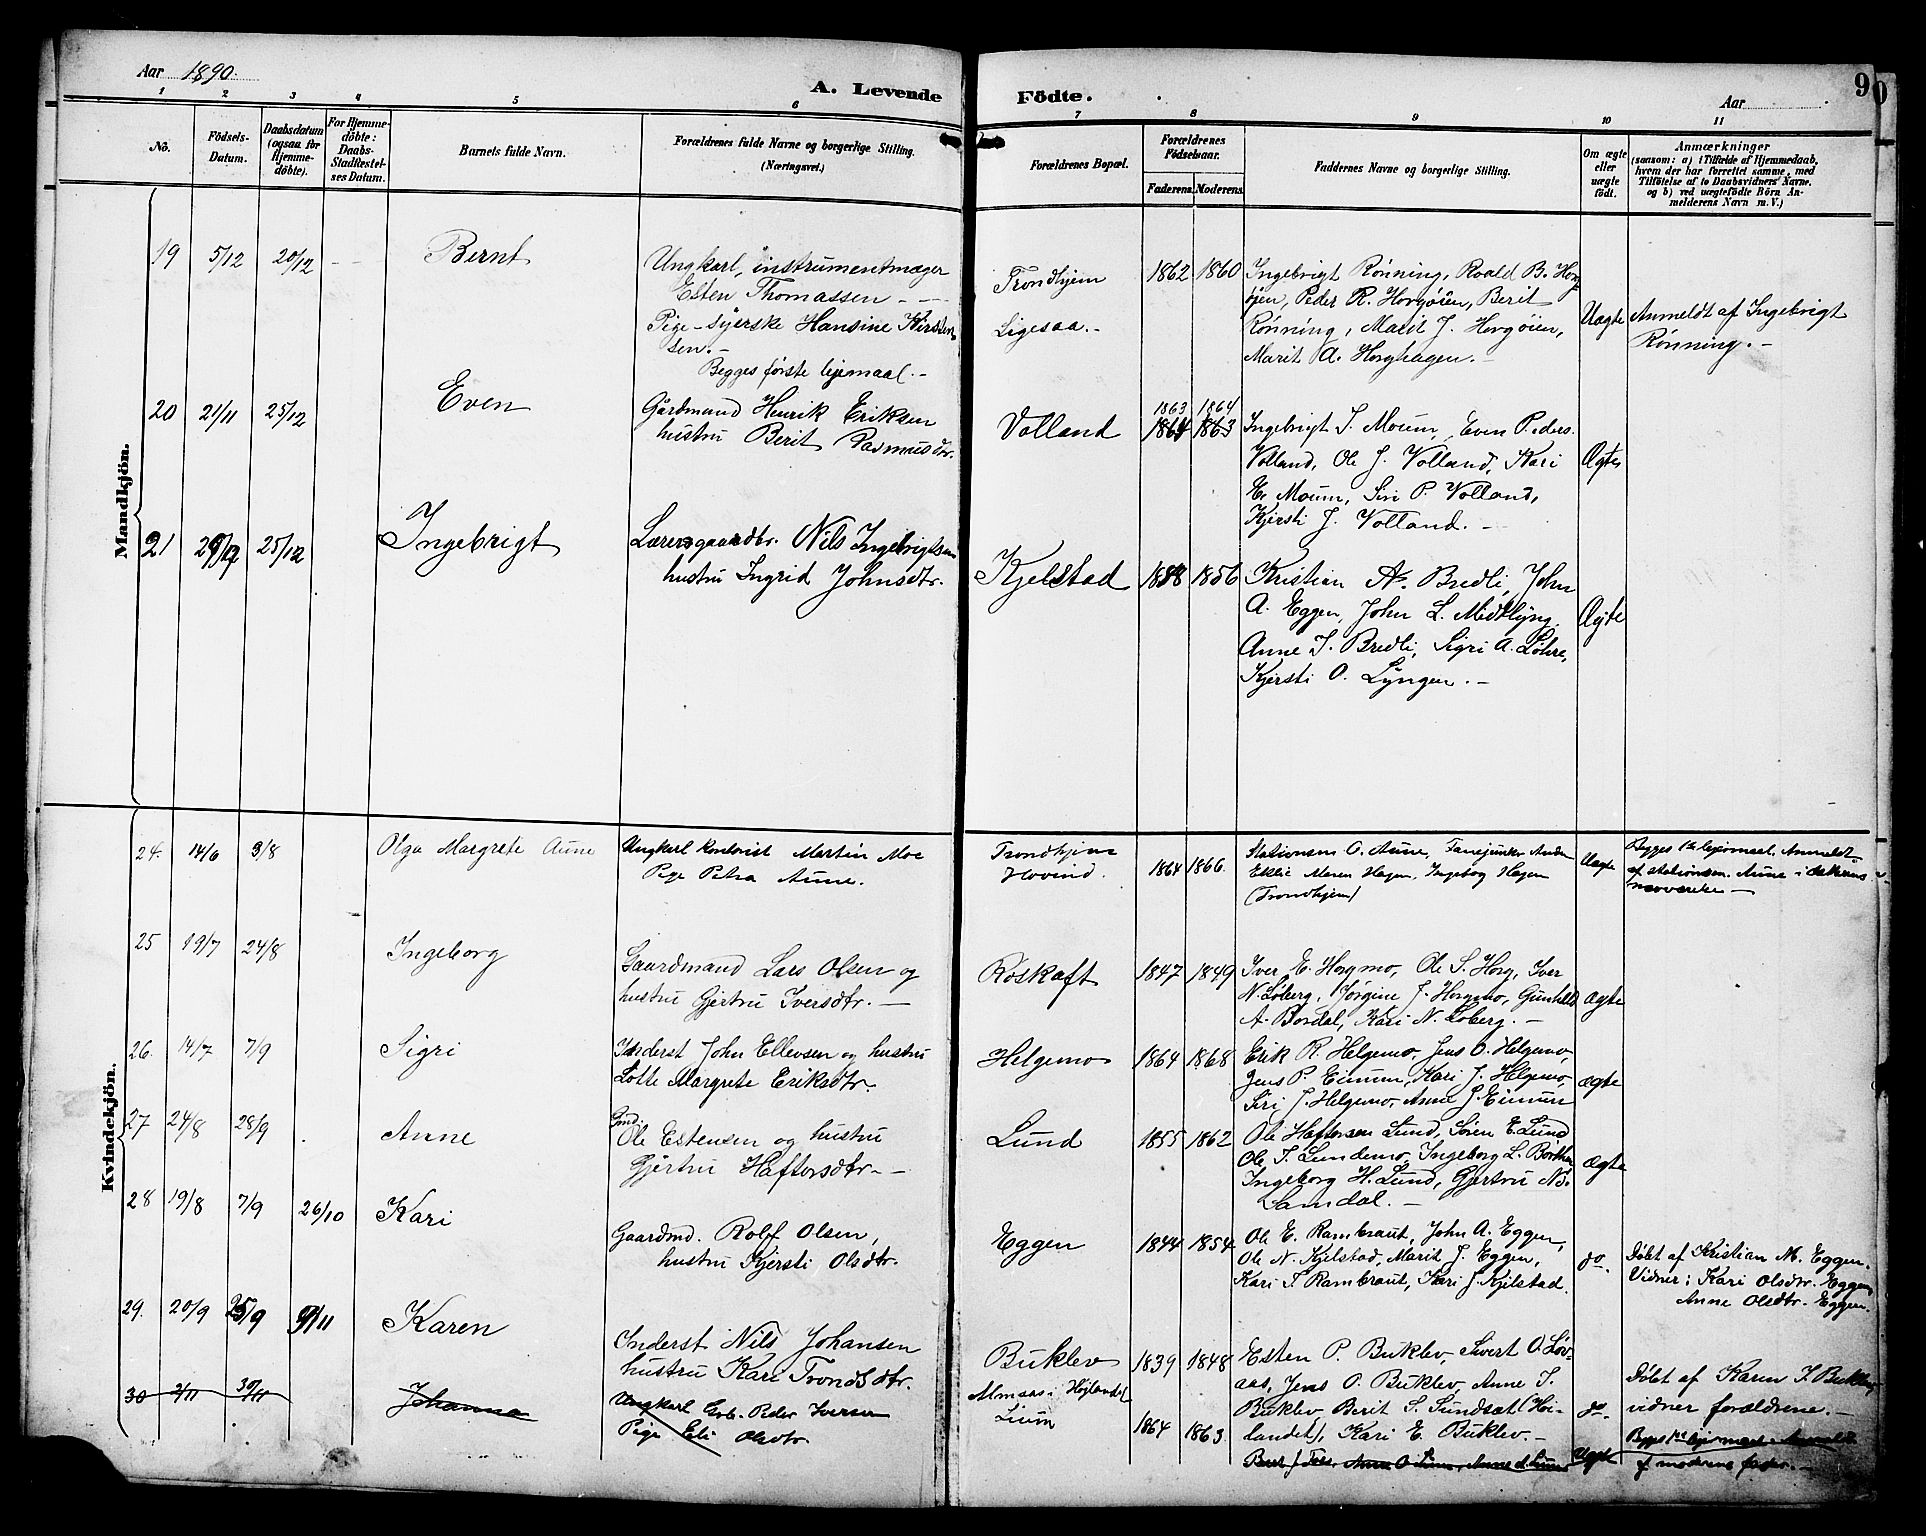 Aar 1890.
A. Levende Födte.
Aar
90
1 2 3 4 5 6 7 8 9 10 11
No.
Födsels-Datum.
Daabsdatum (ogsaa for Hjemme-döbte).
For Hjemme-döbte: Daabs-Stadfæstel-ses Datum.
Barnets fulde Navn.
Forældrenes fulde Navne og borgerlige Stilling. (Næringsvei.)
Forældrenes Bopæl.
Forældrenes Födselsaar.
Faderens. Moderens.
Faddernes Navne og borgerlige Stilling.
Om ægte eller uægte födt.
Anmærkninger
(saasom: a) i Tilfælde af Hjemmedaab, hvem der har forrettet samme, med Tilföielse af to Daabsvidners Navne. og b) ved uægtefödte Börn An-melderens Navn m. V.)
Mandkjön.
19 5/12 20/12 Bernt
Ungkarl, instrumentmager
Esten Thomassen
Pige-syerske Hansine
sen.-
Begges første leiemaal.-
Trondhjem
Ligesaa.-
1862 1860
Ingebrigt Rønning, Roald B. Horg-
øien, Peder R. Horgøien, Berit
Rønning, Marit J. Horgøien,
Marit A. Horghagen.-
Uægte
Anmeldt af Ingebrigt
Rønning.-
20 21/11 25/12 Even
Gårdmand Henrik Eriksen
hustru Berit Rasmusdtr.
Volland
1863 1864
1864 1863
Ingebrigt J. Moum, Even Peders.
Volland, Ole J. Volland, Kari
E. Moum, Siri P. Volland,
Kjersti J. Volland.-
Ægte
21 25/12 Ingebrigt
Nils Ingebrigtsen
hustru Ingrid Johnsdtr.
Kjelstad
1858 1856
Kristian A. Bredli, John
A. Eggen, John L. Midtlyng.
Anne I. Bredli, Sigri A. Løhre,
Kjersti O. Lyngen.-
Ægte
Kvindekjön.
24. 14/6 3/8 Olga Margrete Aune
Ungkarl kontorist Martin Moe
Pige Petra Aune.
Trondhjem
Hovind.
1864 1866.
Stationsm O. Aune, Fanejunker
Eklie Maren Hagen, Ingebog Hagen
(Trondhjem)
Uægte
Begges 1ste leiermaal. Anmeldt
af stationsm. Aune i
nærværelse -
25 19/7 24/8 Ingeborg
Gaardmand Lars Olsen og
hustru Gjertru Iversdtr.-
Röskaft
1847 1849
Iver E. Horgmo, Ole S. Horg, Iver
N. Løberg, Jørgine J. Horgmo, Gunhild
A. Bordal, Kari N. Løberg.-
ægte
26. 14/7 7/9 Sigri
Inderst John Ellevsen og hustru
Lotte Margrete Eriksdtr.
Helgemo
1864 1868
Erik R. Helgemo, Jens O. Helgemo,
Jens P. Eimum, Kari J. Helgemo,
Siri J. Helgemo, Anne J. Eimum
ægte
27 24/8 28/9 Anne
Gmd.
Ole Estensen og hustru
Gjertru Haftorsdtr.-
Lund
1855 1862
Ole Haftorsen Lund, Sören E. Lund
Ole T. Lundemo, Ingeborg L. Borthen,
Ingeborg H. Lund, Gjertru N.
Samdal.-
ægte
28 19/8 7/9 26/10 Kari
Gaardmd. Rolf Olsen,
hustru Kjersti Olsdtr.
Eggen
1844 1854
Ole E. Rambraut, John A. Eggen,
Ole N. Kjelstad, Marit J. Eggen,
Kari T. Rambraut, Kari J. Kjelstad.
do.
Döbt af Kristian M. Eggen.
Vidner: Kari Olsdtr. Eggen
Anne Olsdtr. Eggen.
29. 20/9 25/9 9/11 Karen
Inderst Nils Johansen
hustru Kari Trondsdtr.
Buklev
1839 1848
Esten P. Buklev, Sivert O. Løv-
aas, Jens P. Buklev, Anne J.
Buklev Berit S. Sundsæt (Höi-
landet), Kari E. Buklev.-
do.
Döbt af Karen J. Buklev
vidner forældrene.-
30 2/11 30/11 Johanna
Ungkarl Peder Iversen
Pige Eli Olsdtr.
Almaas i Höjlandet
Lium
1864 1863.
Uægte
Begges 1ste leiermaal. Anmeldt
af moderens fader.-